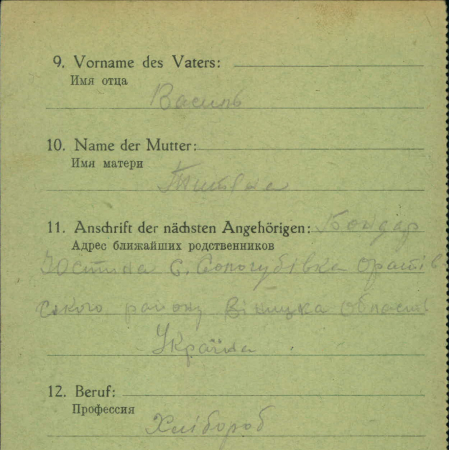 9. Vorname des Vaters:
Имя отца
Василь
10. Name der Mutter:
Имя матери
Титяна
11. Anschrift der nächsten Angehörigen: Бондар
Адрес ближайших родственников
Юстина с. Сологубівка Оратів
ського району Вініцка Область
Україна
12. Beruf:
Профессия
Хлібороб